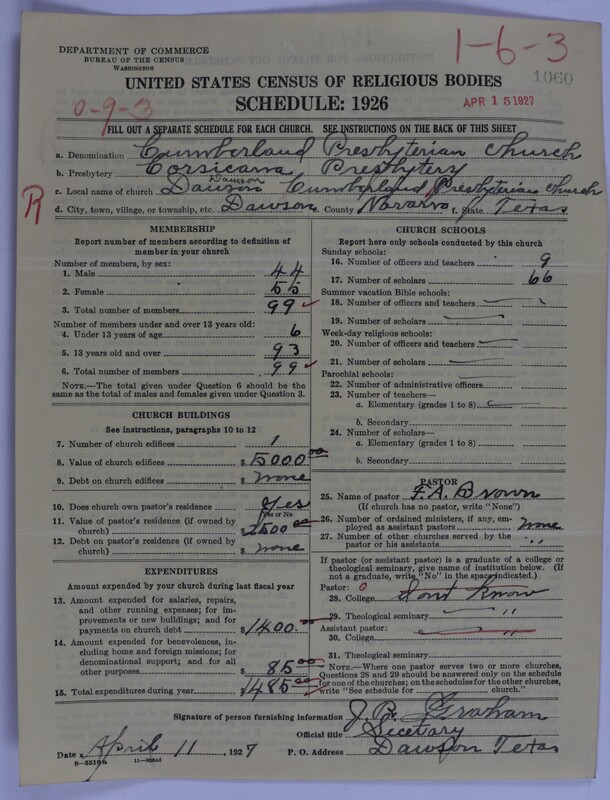 DEPARTMENT OF COMMERCE
BUREAU OF THE CENSUS
WASHINGTON
1-6-3
1060
UNITED STATES CENSUS OF RELIGIOUS BODIES
SCHEDULE: 1926
APR 15 1927
0-9-3
FILL OUT A SEPARATE SCHEDULE FOR EACH CHURCH. SEE INSTRUCTIONS ON THE BACK OF THIS SHEET
a. Denomination Cumberland Presbyterian church
b. Presbytery Corsicana Presbytery
Dawson
c. Local name of church Dawson Cumberland Presbyterian church
R
d. City, town, village, or township, etc. Dawson e. County Navarro f. State Texas
MEMBERSHIP
Report number of members according to definition of
member in your church
Number of members, by sex:
1. Male 44
2. Female 55
3. Total number of members 99 ✓
Number of members under and over 13 years old:
4. Under 13 years of age 6
5. 13 years old and over 93
6. Total number of members 99 ✓
NOTE.—The total given under Question 6 should be the
same as the total of males and females given under Question 3.
CHURCH BUILDINGS
See instructions, paragraphs 10 to 12
7. Number of church edifices 1
8. Value of church edifices $5000.00
9. Debt on church edifices $ none
10. Does church own pastor's residence Yes
Yes or No
11. Value of pastor's residence (if owned by
church) $2500.00
12. Debt on pastor's residence (if owned by
church) $ none
EXPENDITURES
Amount expended by your church during last fiscal year
13. Amount expended for salaries, repairs,
and other running expenses; for im-
provements or new buildings; and for
payments on church debt $1400.00
14. Amount expended for benevolences, in-
cluding home and foreign missions; for
denominational support; and for all
other purposes $ 85.00
15. Total expenditures during year $1485.00
CHURCH SCHOOLS
Report here only schools conducted by this church
Sunday schools:
16. Number of officers and teachers 9
17. Number of scholars 66
Summer vacation Bible schools:
18. Number of officers and teachers
19. Number of scholars
Week-day religious schools:
20. Number of officers and teachers
21. Number of scholars
Parochial schools:
22. Number of administrative officers
23. Number of teachers—
a. Elementary (grades 1 to 8)
b. Secondary
24. Number of scholars—
a. Elementary (grades 1 to 8)
b. Secondary
PASTOR
25. Name of pastor F. A. Brown
(If church has no pastor, write "None")
26. Number of ordained ministers, if any, em-
ployed as assistant pastors None
27. Number of other churches served by the
pastor or his assistants " "
If pastor (or assistant pastor) is a graduate of a college or
theological seminary, give name of institution below. (If
not a graduate, write "No" in the space indicated.)
Pastor:
28. College Dont Know
29. Theological seminary "
Assistant pastor:
30. College "
31. Theological seminary
NOTE.—Where one pastor serves two or more churches,
Questions 28 and 29 should be answered only on the schedule
for one of the churches; on the schedules for the other churches,
write "See schedule for church."
Signature of person furnishing information J. R. Graham
Official title Secretary
Date April 11, 1927 P. O. Address Dawson Texas